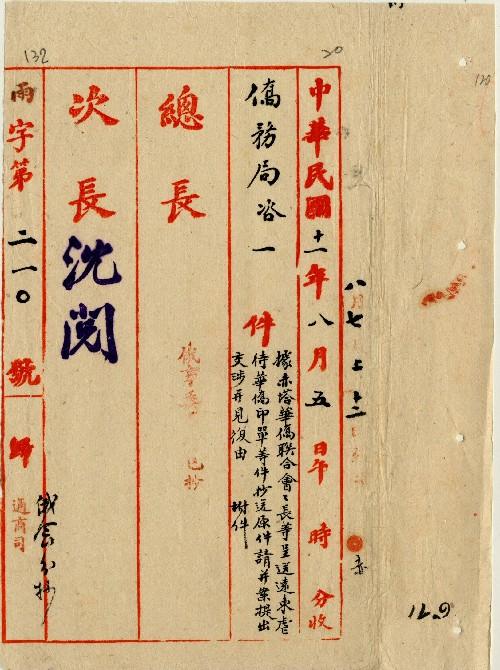 132
20
中華民國十一年八月五日午 時 分收
八月七 上 十二
僑務局咨一 件
據赤塔華僑聯合會會長等呈送遠東虐
待華僑印單等件抄送原件請并案提出
交涉并見復由 附件
總長
已抄
次長
沈閱
雨字第二一〇號
歸
通商司